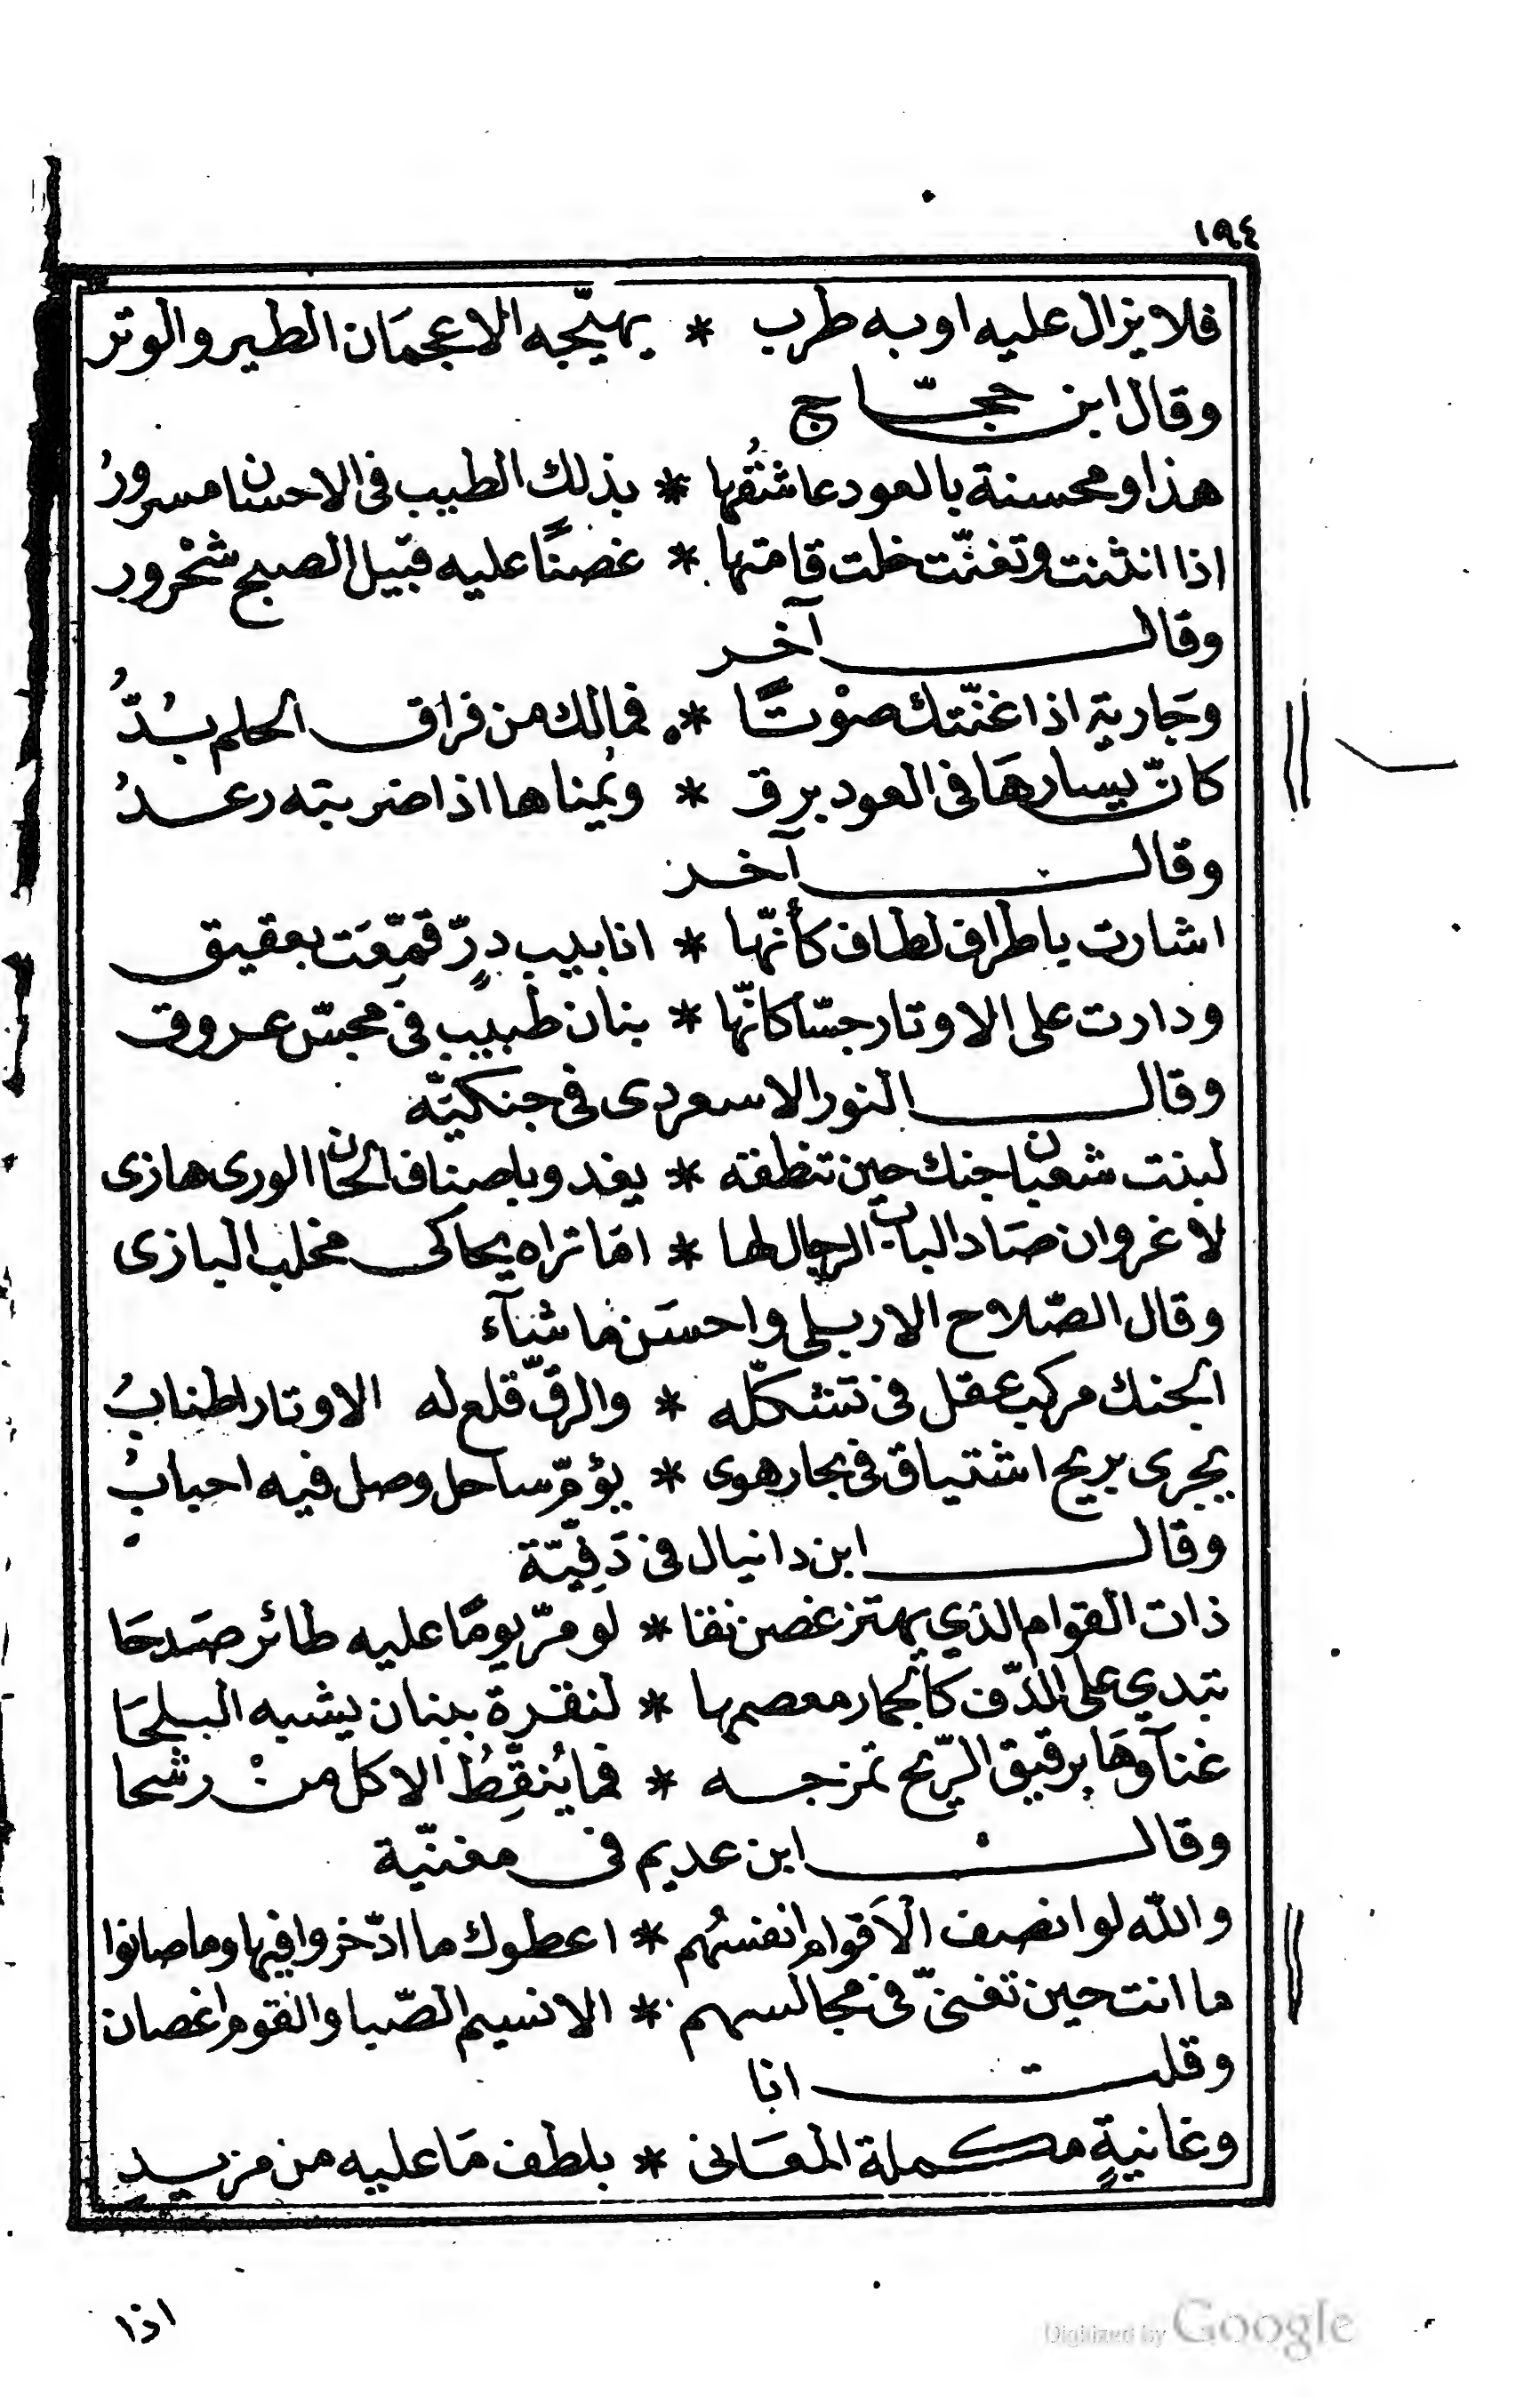 ١٩٤
فلا يزال عليه او به طرب * يهيّجه الاعجمَان الطير والوتر
وقال ابن حجّاج
هذا ومحسنة بالعود عاشقُها * بذلك الطيب فى الاحسان مسرورُ
اذا انثنت وتغنّت خلت قامتها * غصنًا عليه قبيل الصبح شحْرور
وقال آخر
وجَارية اذا غنّتك صوْتًا * فمالك من فراق الحلم بُدُّ
كانّ يسارهَا فى العود برق * ويُمناها اذا ضربته رعدُ
وقال آخر
اشارت باطراف لطاف كأنّها * انابيب درٍّ قمِّعَت بعقيق
ودارت على الاوتار جسّا كانّها * بنان طبيب فى مجسّ عروق
وقال النور الاسعردى فى جنكيّه
لبنت شعبان جنك حين تنطقه * يغدو باصناف الحان الورى هازى
لا غرو ان صَاد الباب الرجال لها * امَا تراه يحاكى مخلب البازى
وقال الصّلاح الاربلى واحسَن ما شآء
الجنك مركب عقل فى تشكّله * والرقّ قلع له الاوتار اطنابُ
يجرى بريح اشتياق فى بحار هوى * يؤمّ ساحل وصل فيه احبابُ
وقال ابن دانيال فى دَفِيّة
ذات القوام الذي يهتز غصن نقا * لو مرّ يومًا عليه طائر صَدحَا
تبدي على الدّف كالجمار معصمها * لنقرة ببنان يشبه البلحَا
غنآوهَا برقيق الرّيح تمزجه * فما يُنقِّطُ الا كل منْ رشحا
وقال ابن عديم فى مغنّية
والله لو انصف الاَقوام انفسُهم * اعطوك ما ادّخروا فيها وما صانوا
ما انت حين تغنّى فى مجالسهم * الا نسيم الصّبا والقوم اغصان
وقلت انا
وغانيةٍ مكملة المعَانى * بلطف مَا عليه من مزيدِ
اذا
Digitized by Google